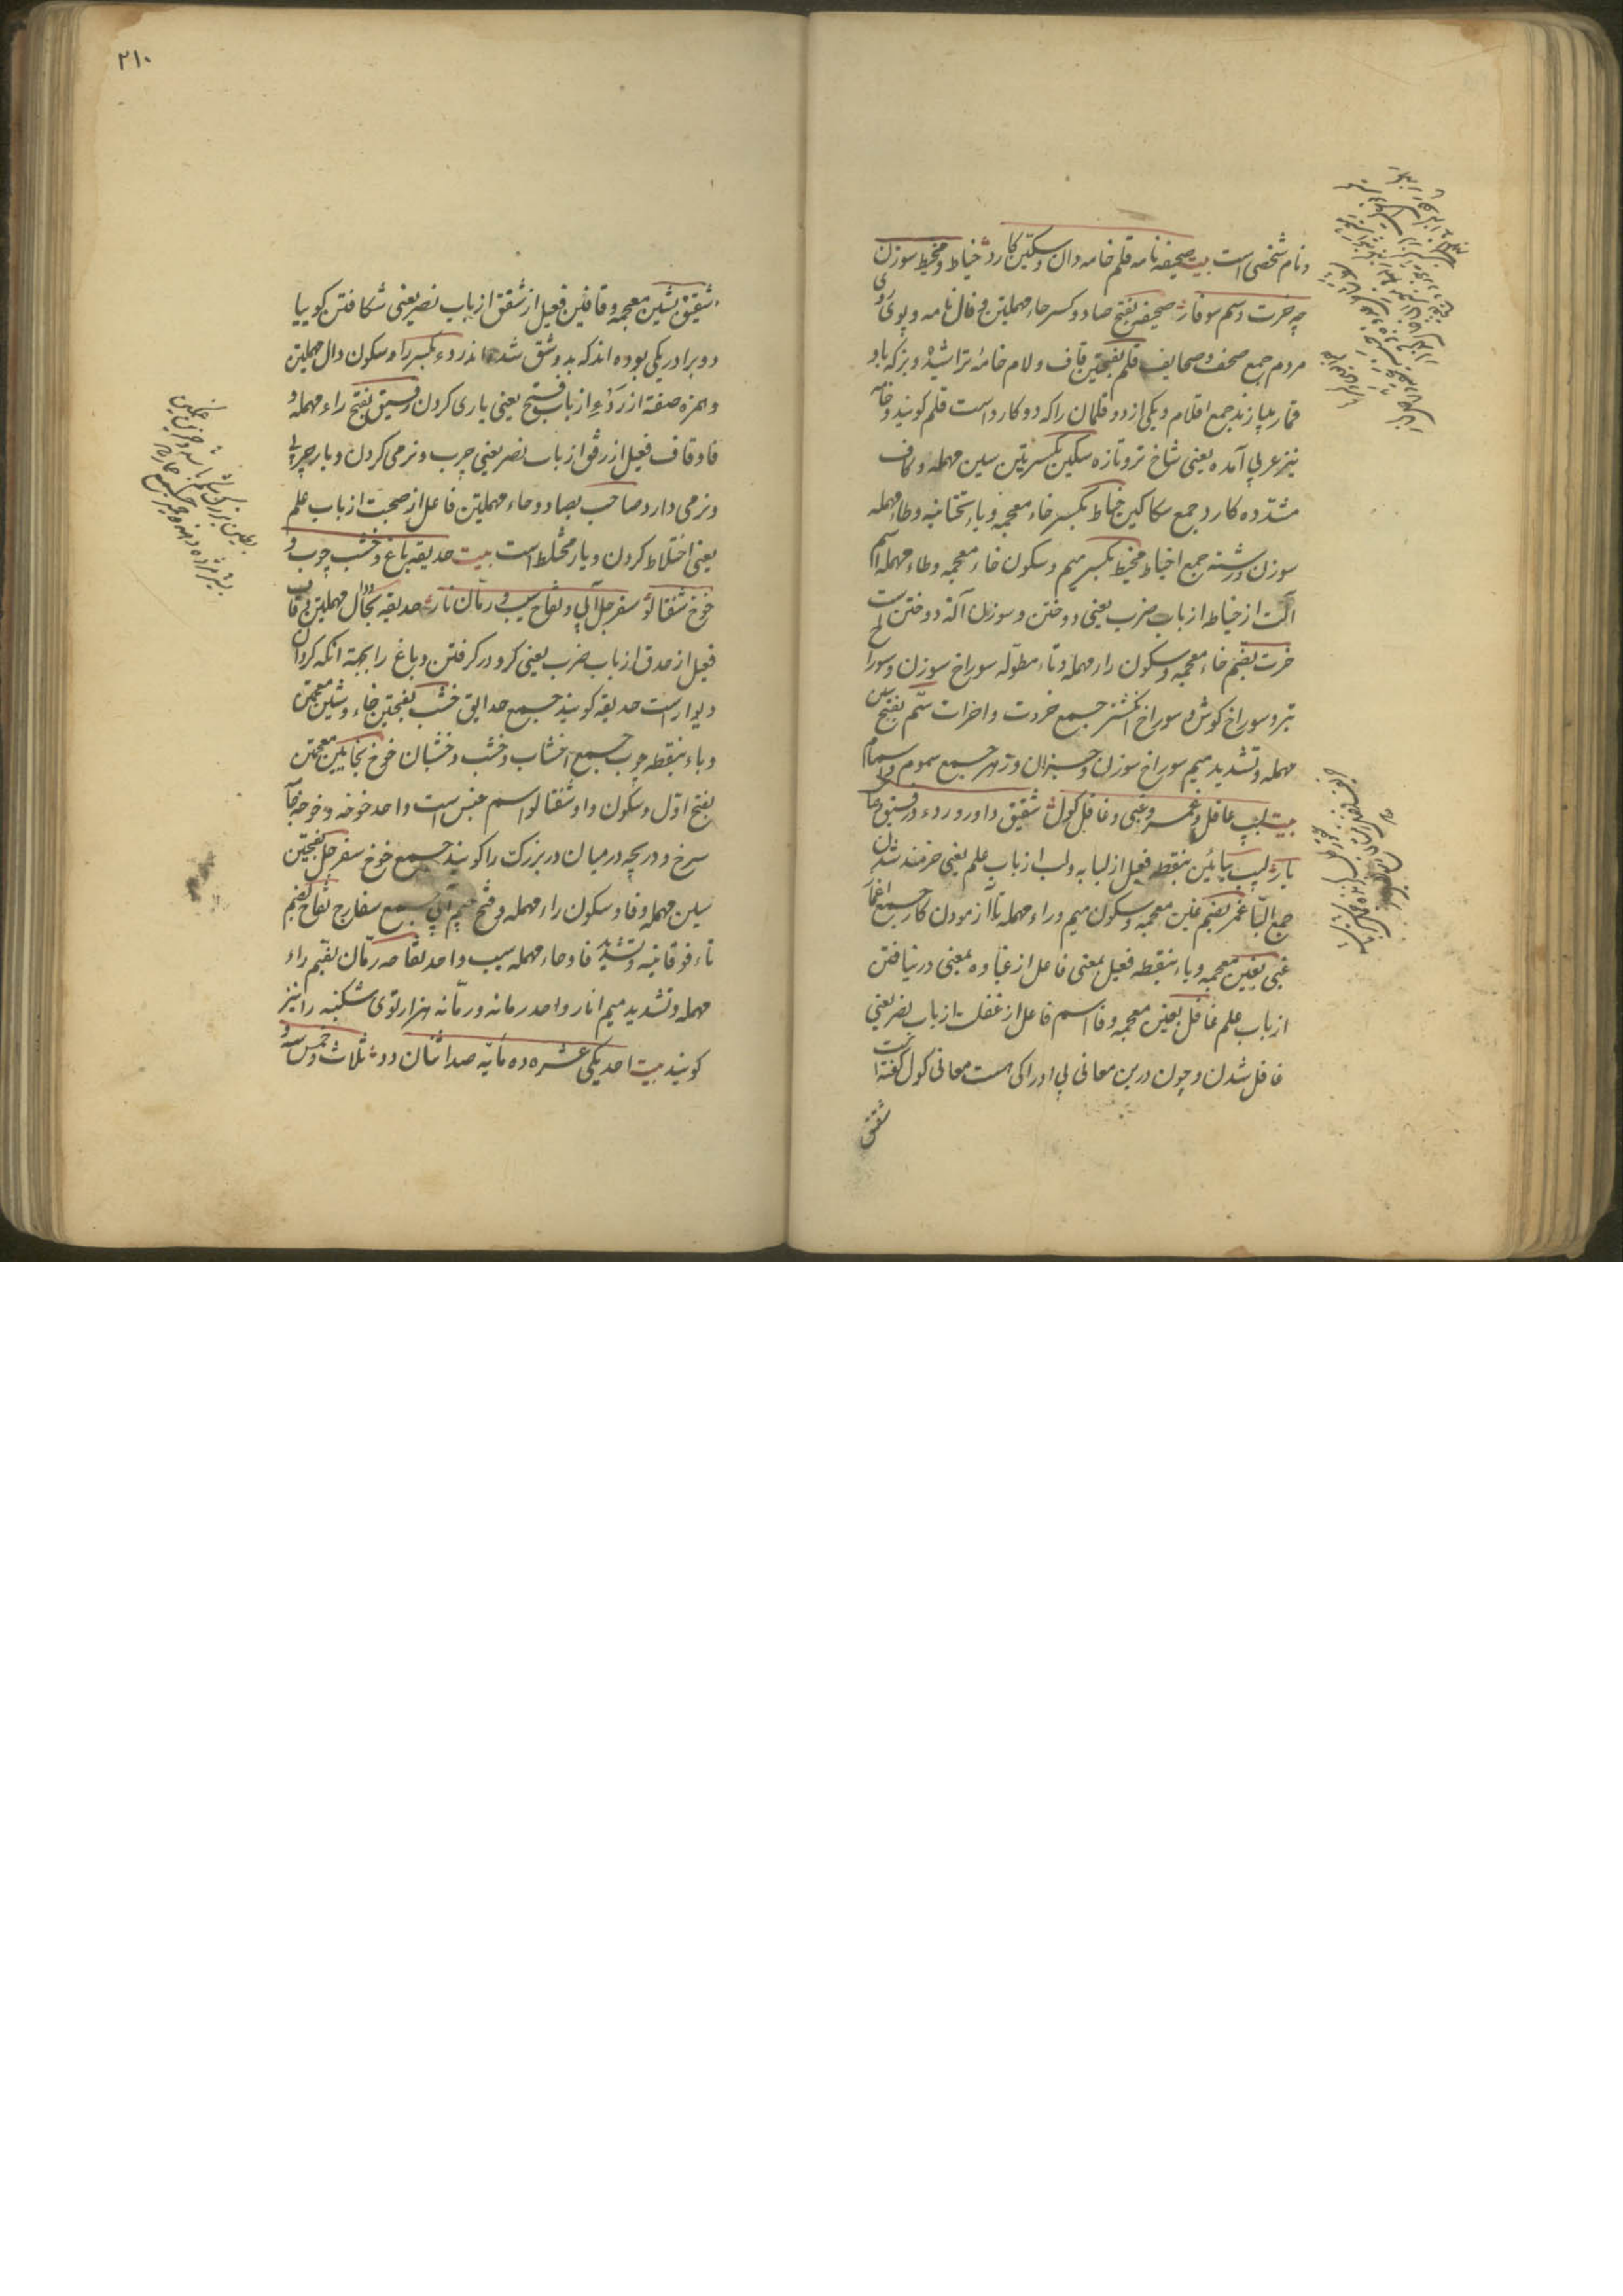 ونام شخصی است بیت صحیفه نامه قلم خامه دان و سکین کارد خیاط و مخیط سوزن
چه خرت و سم سوفار صحیفه بفتح صاد و کسر حاء مهملتین و فا نامه و پوی روی
مردم جمع صحف و صحایف قلم بفتحتین قاف و لام خامۀ تراشیده و بزکه باو
قمار ببازند جمع اقلام و یکی از دو قلمان را که دو کارد است قلم کویند و خامه
نیز عربی آمده یعنی شاخ تر و تازه سکین بکسرتین سین مهمله و کاف
مشدده کارد جمع سکاکین خیاط بکسر خاء معجمه و یاء تحتانیه و طاء مهمله
سوزن و رشته جمع اخیاط مخیط بکسر میم و سکون خاء معجمه و طاء مهمله اسم
آلت از خیاطه از باب ضرب یعنی دوختن و سوزن آلة دوختن است
خرت بضم خاء معجمه و سکون راء مهمله و تاء مطوله سوراخ سوزن و سوراخ
تبر و سوراخ کوش و سوراخ انکشتر جمع خروت و اخرات سم بفتح سین
مهمله و تشدید میم سوراخ سوزن و جز آن و زهر جمع سموم و سمام
بیت لبیب عاقل و غمر و غبی و غافل کول شقیق داور و ردء و رفیق و صاحب
یار لبیب ببائین بنقطه فعیل از لبابه و لب از باب علم یعنی خردمند شدن
جمع البا غمر بضم غین معجمه و سکون میم و راء مهمله ناآزمودن کار جمع اغمار
غبی بغین معجمه و باء بنقطه فعیل بمعنی فاعل از غباوه بمعنی درنیافتن
از باب علم غافل بغین معجمه و فا اسم فاعل از غفلت از باب نصر یعنی
غافل شدن و چون درین معانی بی ادراکی هست معانی کول گفته است
شقیق
۲۱۰
شقیق بشین معجمه و قافین فعیل از شقق از باب نصر یعنی شکافتن کوییا
دو برادر یکی بوده اند که بدو شق شده اند ردء بکسر را و سکون دال مهملتین
و همزه صفة از ردء از باب فتح یعنی یاری کردن رفیق بفتح راء مهمله و
فا و قاف فعیل از رفق از باب نصر یعنی چرب و نرمی کردن و یار چربی
و نرمی دارد صاحب بصاد و حاء مهملتین فاعل از صحبت از باب علم
یعنی اختلاط کردن و یار مختلط است بیت حدیقه باغ و خشب چوب و
خوخ شفتالو سفرجل آبی و تفاح سیب و رمان نار حدیقه بحا و دال مهملتین و قاف
فعیل از حدق از باب ضرب یعنی کرد در کرفتن و باغ را بجهة انکه کرد آن
دیوار است حدیقه کویند جمع حدایق خشب بفتحتین خاء و شین معجمتین
و باء بنقطه چوب جمع اخشاب و خشب و خشبان خوخ بخایین معجمتین
بفتح اول و سکون واو شفتالو اسم جنس است واحد خوخه و خوخه
سرخ و دریچه در میان در بزرک را کویند جمع خوخ سفرجل بفتحتین
سین مهمله و فا و سکون راء مهمله و فتح جیم آبی جمع سفارج تفاح بضم
تاء فوقانیه و تشدید فا و حاء مهمله سیب واحد تفاحه رمان بضم راء
مهمله و تشدید میم انار واحد رمانه و رمانه هزار توی شکنبه را نیز
کویند بیت احد یکی عشره ده مایه صد اثنان دو ثلاث و خمس سه و